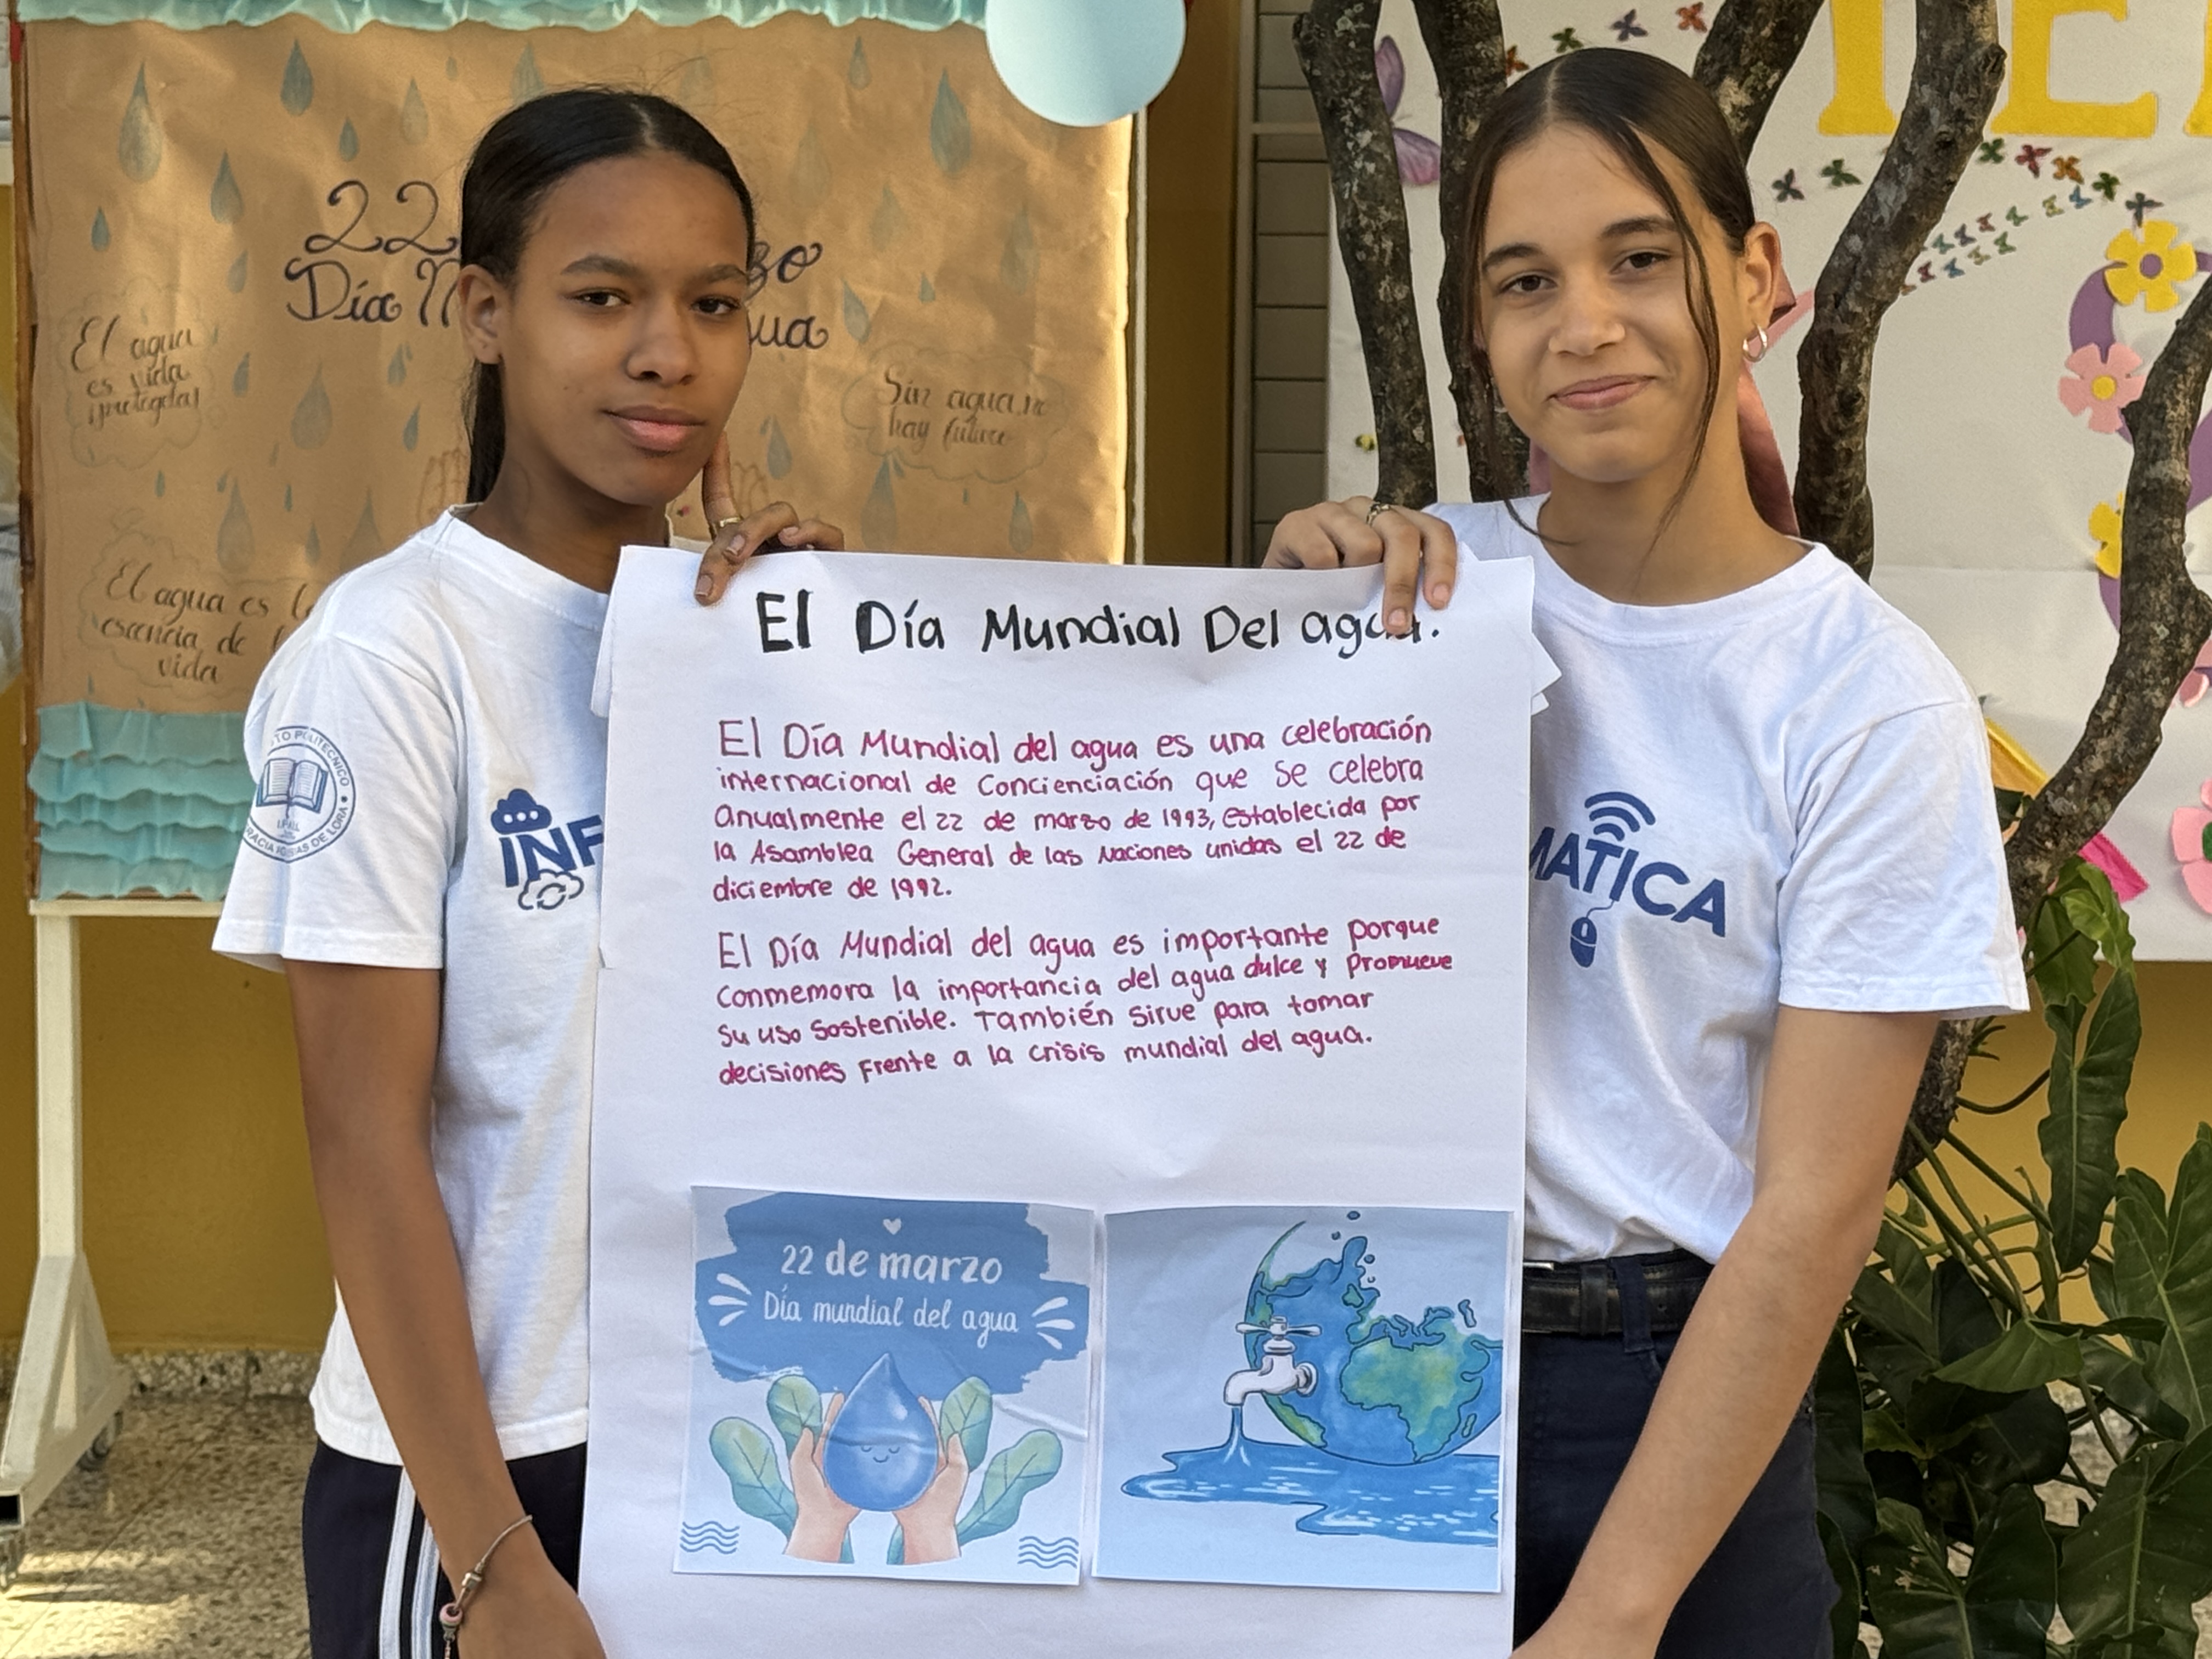 22
Día
zo
ua
El agua
es vida
¡protegela!
Sin agua no
hay futuro
El agua es l
esencia de l
vida
TO POLITECNICO
DE LORA
INF
MATICA
TE
El Día Mundial Del agua.
El Día Mundial del agua es una celebración
internacional de Concienciación que se celebra
Anualmente el 22 de marzo de 1993, establecida por
la Asamblea General de las Naciones unidas el 22 de
diciembre de 1992.
El Día Mundial del agua es importante porque
conmemora la importancia del agua dulce y Promueve
su uso sostenible. También sirve para tomar
decisiones Frente a la crisis mundial del agua.
22 de marzo
Día mundial del agua